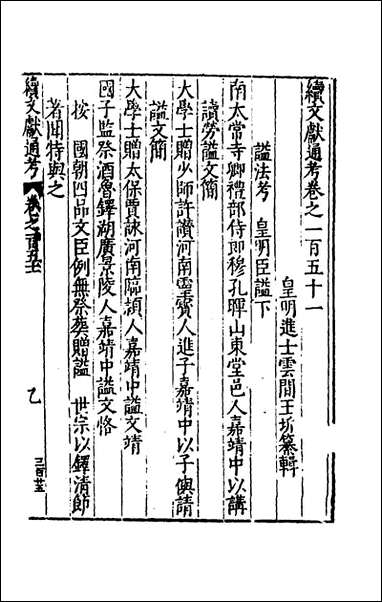 續文獻通考卷之一百五十一
皇明進士雲間王圻纂輯
謚法考 皇明臣謚下
南太常寺卿禮部侍郎穆孔暉山東堂邑人嘉靖中以講
讀勞謚文簡
大學士贈少師許讃河南靈寳人進子嘉靖中以子㒜請
謚文簡
大學士贈太保賈詠河南臨頴人嘉靖中謚文靖
國子監祭酒魯鐸湖廣景陵人嘉靖中謚文恪
按 國朝四品文臣例無祭葬贈謚 世宗以鐸清節
著聞特與之
續文獻通考 卷之百五十一